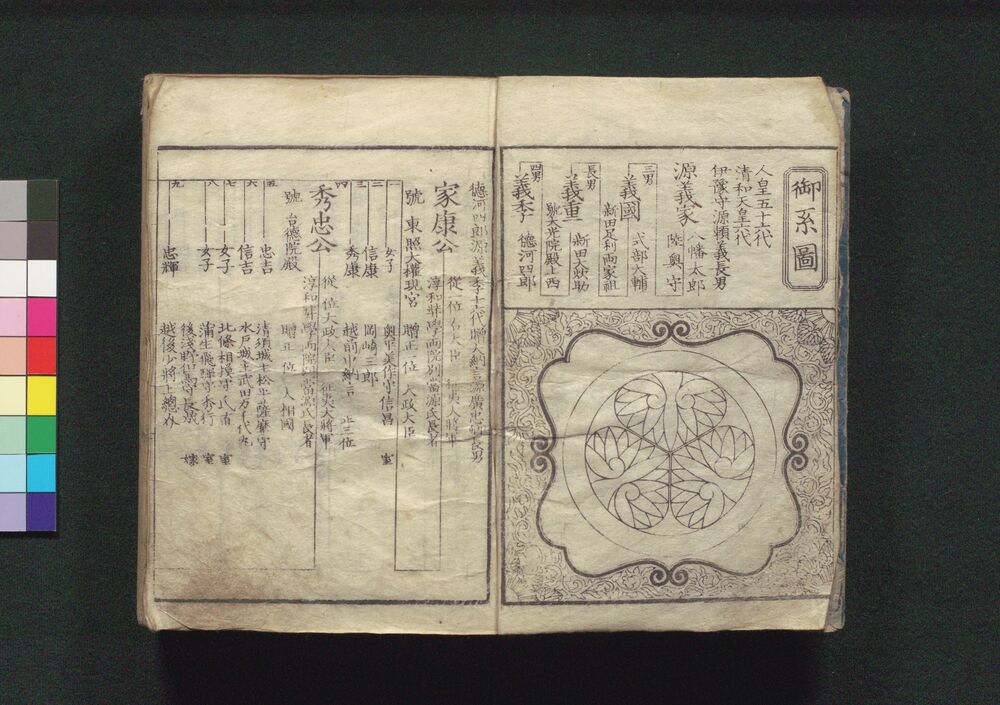 御系圖
人皇五十六代
清和天皇六代
伊豫守源頼義長男
源義家 八幡太郎
陸奥守
三男
義國 式部大輔
新田足利両家祖
長男
義重 新田大炊助
號大光院殿上西
四男
義季 徳河四郎
徳河四郎源義季十六代贈大納言源廣忠卿長男
家康公 従一位右大臣 征夷大将軍
淳和奨學両院別當源氏長者
號 東照大権現宮 贈正一位 太政大臣
一 女子 奥平美作守信昌 室
二 信康 岡崎三郎
三 秀康 越前中納言 正三位
四
秀忠公 従一位太政大臣 征夷大将軍
淳和奨學両院別當源氏長者
號 台德院殿 贈正一位 大相國
五 忠吉 清須城主松平薩摩守
六 信吉 水戸城主武田万千代丸
七 女子 北條相模守氏直 室
八 女子 蒲生飛騨守秀行 室
後浅野但馬守長晟 嫁
九 忠輝 越後少将上總介